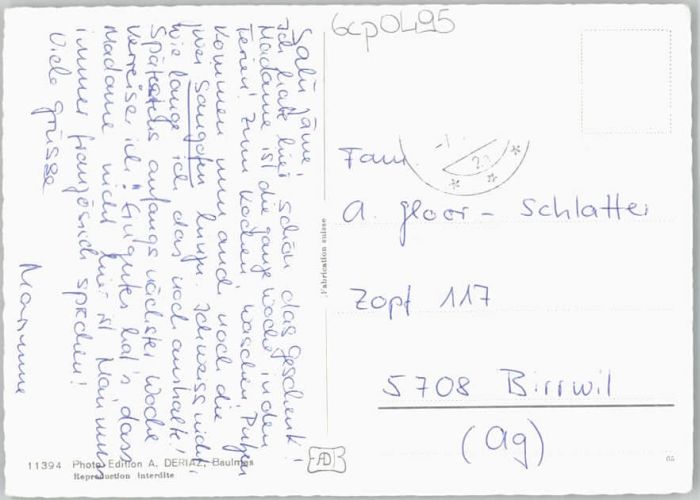 6cp0495
Salü Zäme!
Ich hatte hier schön das geschenk!
Madame ist die ganze Woche in den
Ferien! Zum kochen, waschen, Putzen
kommen nun auch noch die
zwei Saugofen lunge. Ich weiss nicht
wie lange ich das noch aushalte!
Spätestens anfangs nächster Woche
verreise ich! Ein gutes hat's dass
Madame nicht hier ist, Man muss
immer französisch sprechen!
Viele grüsse
Fam
A. gloor - Schlatter
Zopf 117
5708 Birrwil
(Ag)
Fabrication suisse
11394 Photo Edition A. DERIAZ, Baulmes
Reproduction interdite
AD